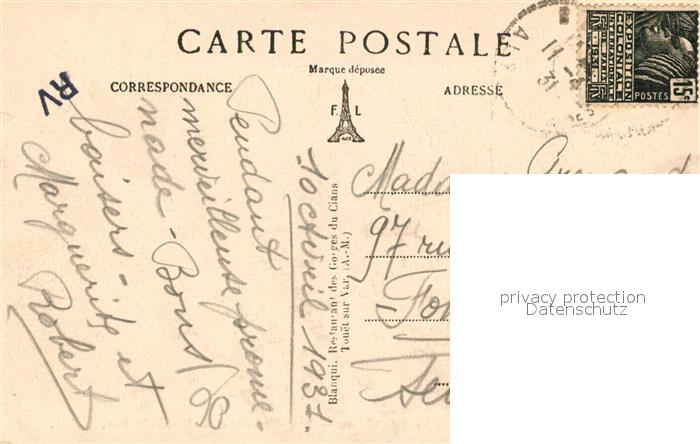 CARTE POSTALE
Marque déposée
CORRESPONDANCE
ADRESSE
F L
RV
EXPOSITION
COLONIALE
INTERNATIONALE
POSTES
15c
Pendant
merveilleuse prome-
nade - Bons
baisers -
Marguerite et
Robert
10 avril 1931.
Blanqui, Restaurant des Gorges du Cians
Touët sur Var, (A.-M.)
97 rue
privacy protection
Datenschutz